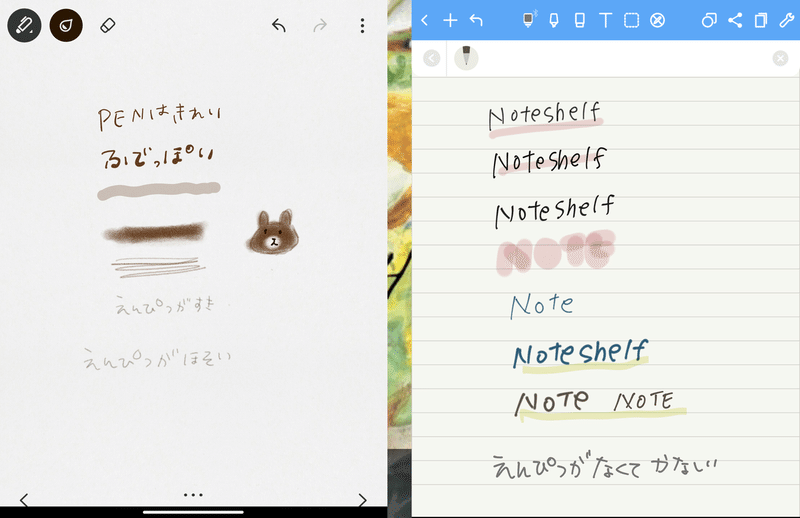 PENはきれい
ふでっぽい
えんぴつがすき
えんぴつがほそい
Noteshelf
Noteshelf
Noteshelf
NOTE
Note
Noteshelf
NOTE NOTE
えんぴつがなくてかなしい